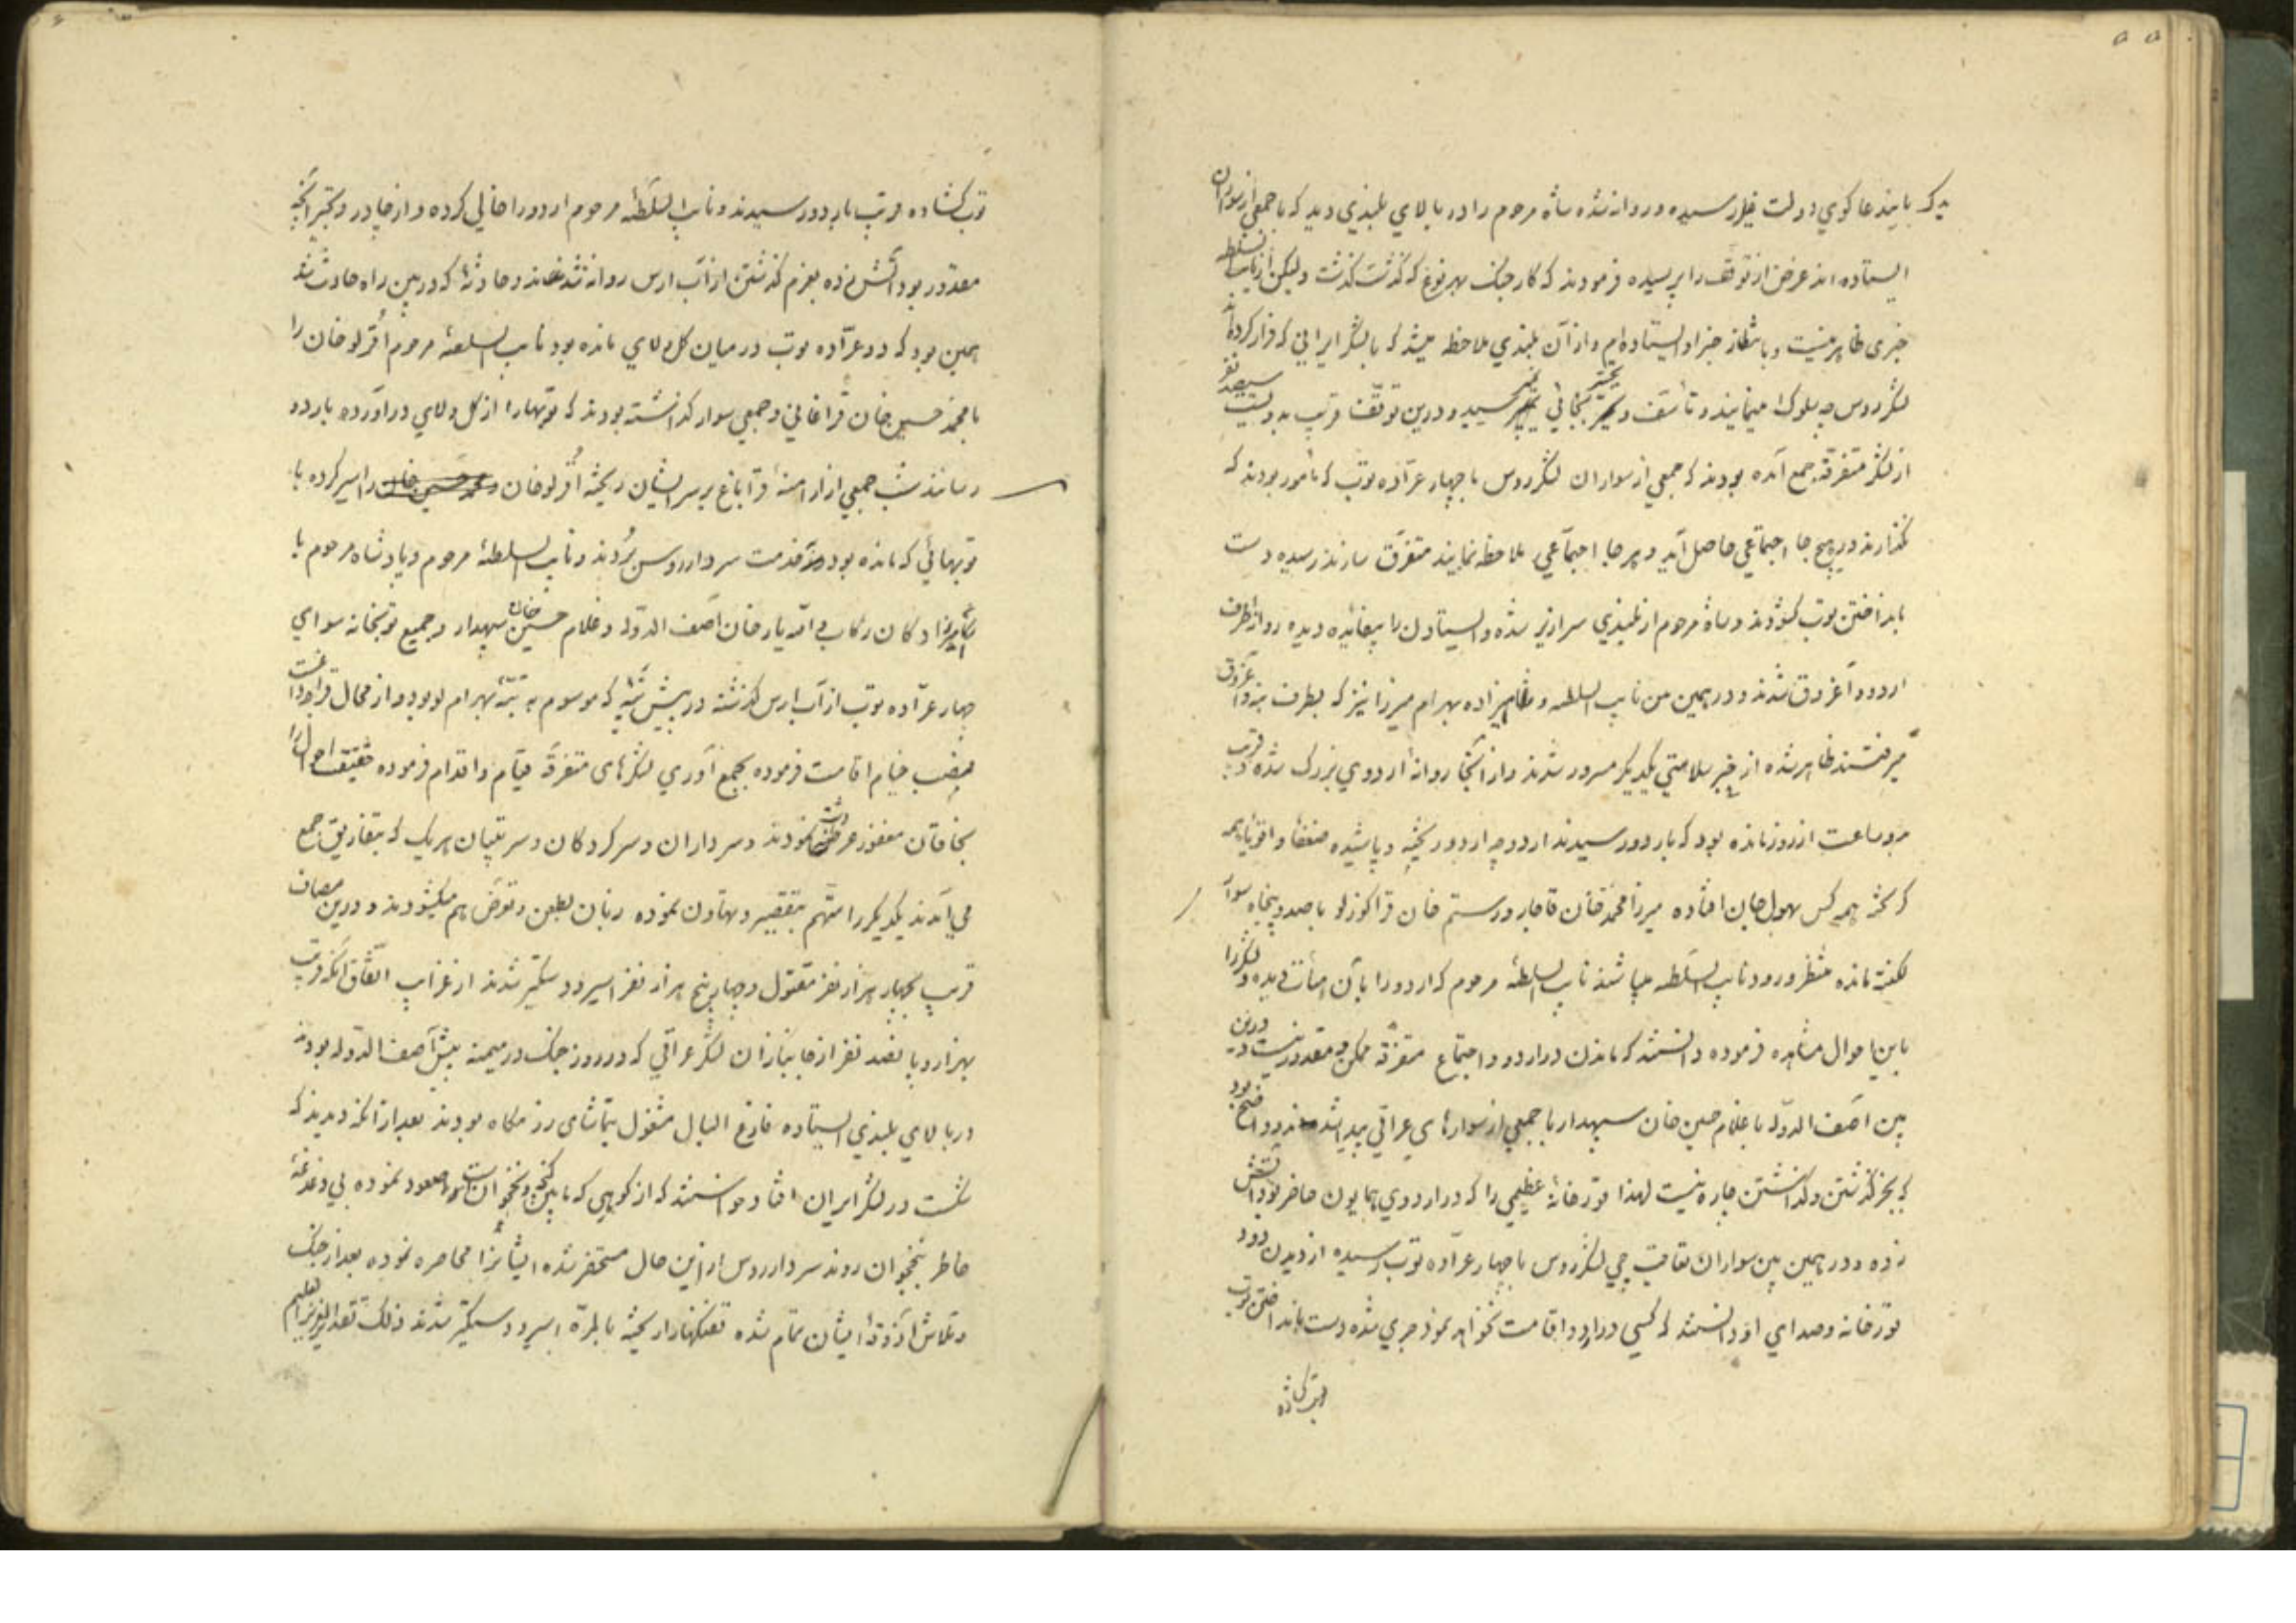 ۵۵
که باین دعا گوی دولت خیلی رسیده و روانه شده شاه مرحوم را در بالای بلندی دید که با جمعی از سواران
ایستاده اند عرض از توقف را پرسیده فرمودند که کار جنگ بهر نوع که گذشت گذشت ولیکن از نایب السلطنه
خبری ظاهر نیست و بانتظار خبر او ایستاده‌ایم و از آن بلندی ملاحظه میشد که با لشکر ایرانی که فرار کرده‌اند
لشکر روس چه سلوک مینمایند و تأسف و تحیر بجائی نمیرسید و درین توقف قریب به دویست سیصد نفر
از لشکر متفرقه جمع آمده بودند که جمعی از سواران لشکر روس با چهار عرّاده توپ که مأمور بودند که
نگذارند در هیچ جا اجتماعی حاصل آید و هر جا اجتماعی ملاحظه نمایند متفرق سازند رسیده دست
بانداختن توپ گشودند و شاه مرحوم از بلندی سرازیر شده و ایستادن را بیفائده دیده روانه طرف
اردو و آغروق شدند و در همین من نایب السلطنه و شاهزاده بهرام میرزا نیز که بطرف بنه و آغروق
میرفتند ظاهر شده از خبر سلامتی یکدیگر مسرور شدند و از آنجا روانه اردوی بزرگ شده قریب
بدو ساعت از روز مانده بود که باردو رسیدند اردو چه اردو ریخته و پاشیده ضعفا و اقویا همه
گریخته همه کس بهول جان افتاده میرزا محمد خان قاجار و رستم خان قراگوزلو با صد و پنجاه سوار
لکفته مانده منتظر ورود نایب السلطنه میباشند نایب السلطنه مرحوم که اردو را بآن هیأت دیده و لشکر را
باین احوال مشاهده فرموده دانستند که ماندن در اردو و اجتماع متفرقه ممکن و مقدور نیست درین
بین آصف الدوله با غلام حسین خان سپهدار با جمعی از سوارهای عراقی پیدا شدند و واضح بود
که بجز گذشتن و گذاشتن چاره نیست لهذا قورخانهٔ عظیمی را که در اردوی همایون حاضر بود آتش
زده و در همین بین سواران تعاقبچی لشکر روس با چهار عرّاده توپ رسیده از دیدن دود
قورخانه و صدای او دانستند که کسی در اردو اقامت نخواهد نمود جری شده دست بانداختن توپ
توپ گشاده
توپ گشاده قریب باردو رسیدند و نایب السلطنه مرحوم اردو را خالی کرده و از چادر و غیر آنچه
مقدور بود آتش زده بعزم گذشتن از آب ارس روانه شدند و حادثهٔ که در بین راه حادث شد
همین بود که دو عرّاده توپ در میان گل و لای مانده بود نایب السلطنه مرحوم اُغرلو خان را
با محمد حسین خان قراغانی و جمعی سوار گذاشته بودند که توپها را از گل و لای درآورده باردو
رسانند شب جمعی از ارامنهٔ قراباغ بر سر ایشان ریخته اُغرلو خان و محمد حسین خان را اسیر کرده با
توپهائی که مانده بود بخدمت سردار روس بردند و نایب السلطنه مرحوم و پادشاه مرحوم با
شاهزادگان رکاب و الله یار خان آصف الدوله و غلام حسین خان سپهدار و جمیع توپخانه سوای
چهار عرّاده توپ از آب ارس گذشته در پیش تپه که موسوم به تپه بهرام لو بود و از محال قراجه داغست
نصب خیام اقامت فرموده بجمع آوری لشکرهای متفرقه قیام و اقدام فرموده حقیقت احوال را
بخاقان مغفور عرضه داشت نمودند و سرداران و سرکردگان و سرتیپان هر یک که بتفاریق جمع
می آمدند یکدیگر را متهم بتقصیر و تهاون نموده زبان بطعن و تعرض هم میگشودند و درین مصاف
قریب بچهار هزار نفر مقتول و چهار پنج هزار نفر اسیر و دستگیر شدند از غرایب اتفاق آنکه قریب
بهزار و پانصد نفر از جانبازان لشکر عراقی که در روز جنگ در میمنه پیش آصف الدوله بودند
در بالای بلندی ایستاده فارغ البال مشغول بتماشای رزمگاه بودند بعد از آنکه دیدند که
شکست در لشکر ایران افتاد خواستند که از کوهی که مابین گنجه و نخجوان است صعود نموده بی دغدغهٔ
خاطر بنخجوان روند سردار روس از این حال مستحضر شده ایشانرا محاصره نموده بعد از جنگ
و تلاش آذوقهٔ ایشان تمام شده تفنگها را ریخته بالمرّه اسیر و دستگیر شدند ذلک تقدیر العزیز العلیم